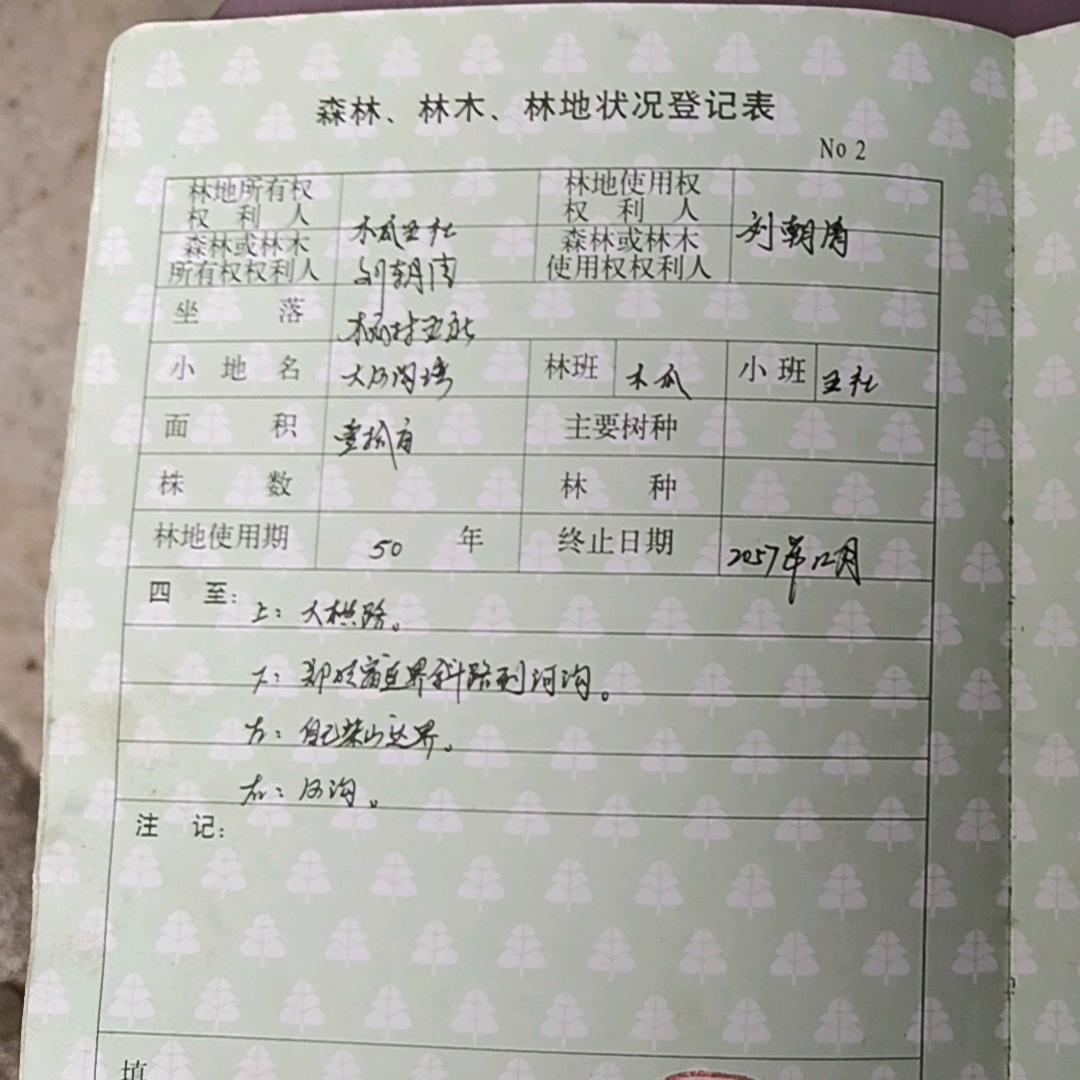 森林、林木、林地状况登记表
No 2
林地所有权
权利人
木瓜五社
林地使用权
权利人
刘朝清
森林或林木
所有权权利人
刘朝清
森林或林木
使用权权利人
坐落
五社
小地名
林班
木瓜
小班
五社
面积
壹拾亩
主要树种
株数
林种
林地使用期
50 年
终止日期
2057年12月
四至:
上:大横路。
下:界斜路到河沟。
左:自己柴山边界。
右:沟。
注记:
填